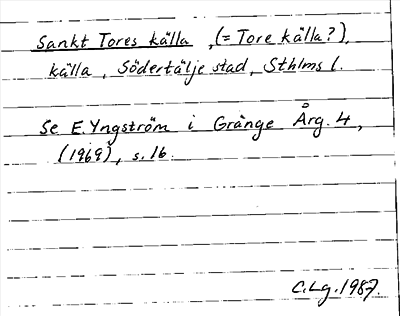 Sankt Tores källa, (= Tore källa?),
källa, Södertälje stad, Sthlms l.
Se E. Yngström i Gränge Årg. 4,
(1969), s. 16.
C.Lg. 1987.